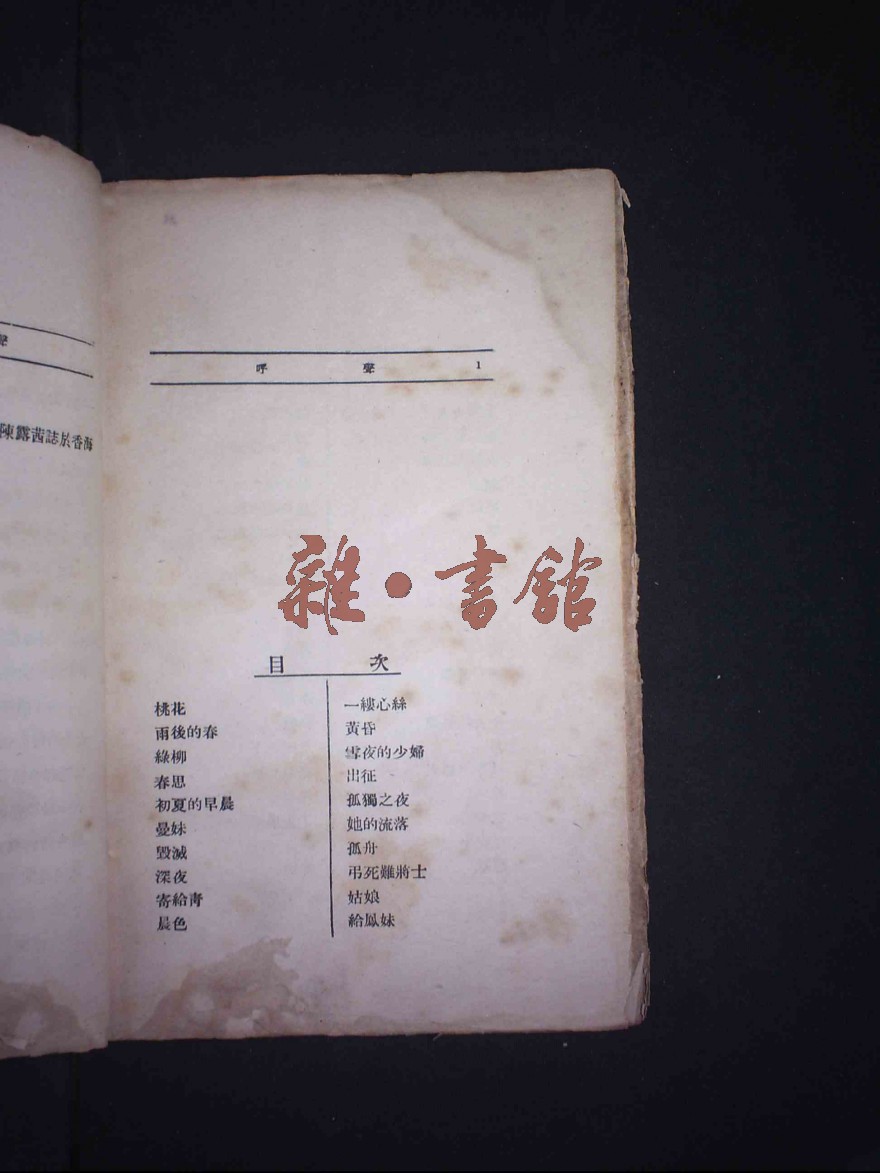 聲
陳露茜誌於香海
呼聲 1
雜·書館
目次
桃花
雨後的春
綠柳
春思
初夏的早晨
曼妹
毀滅
深夜
寄給靑
晨色
一縷心絲
黃昏
雪夜的少婦
出征
孤獨之夜
她的流落
孤舟
弔死難將士
姑娘
給鳳妹